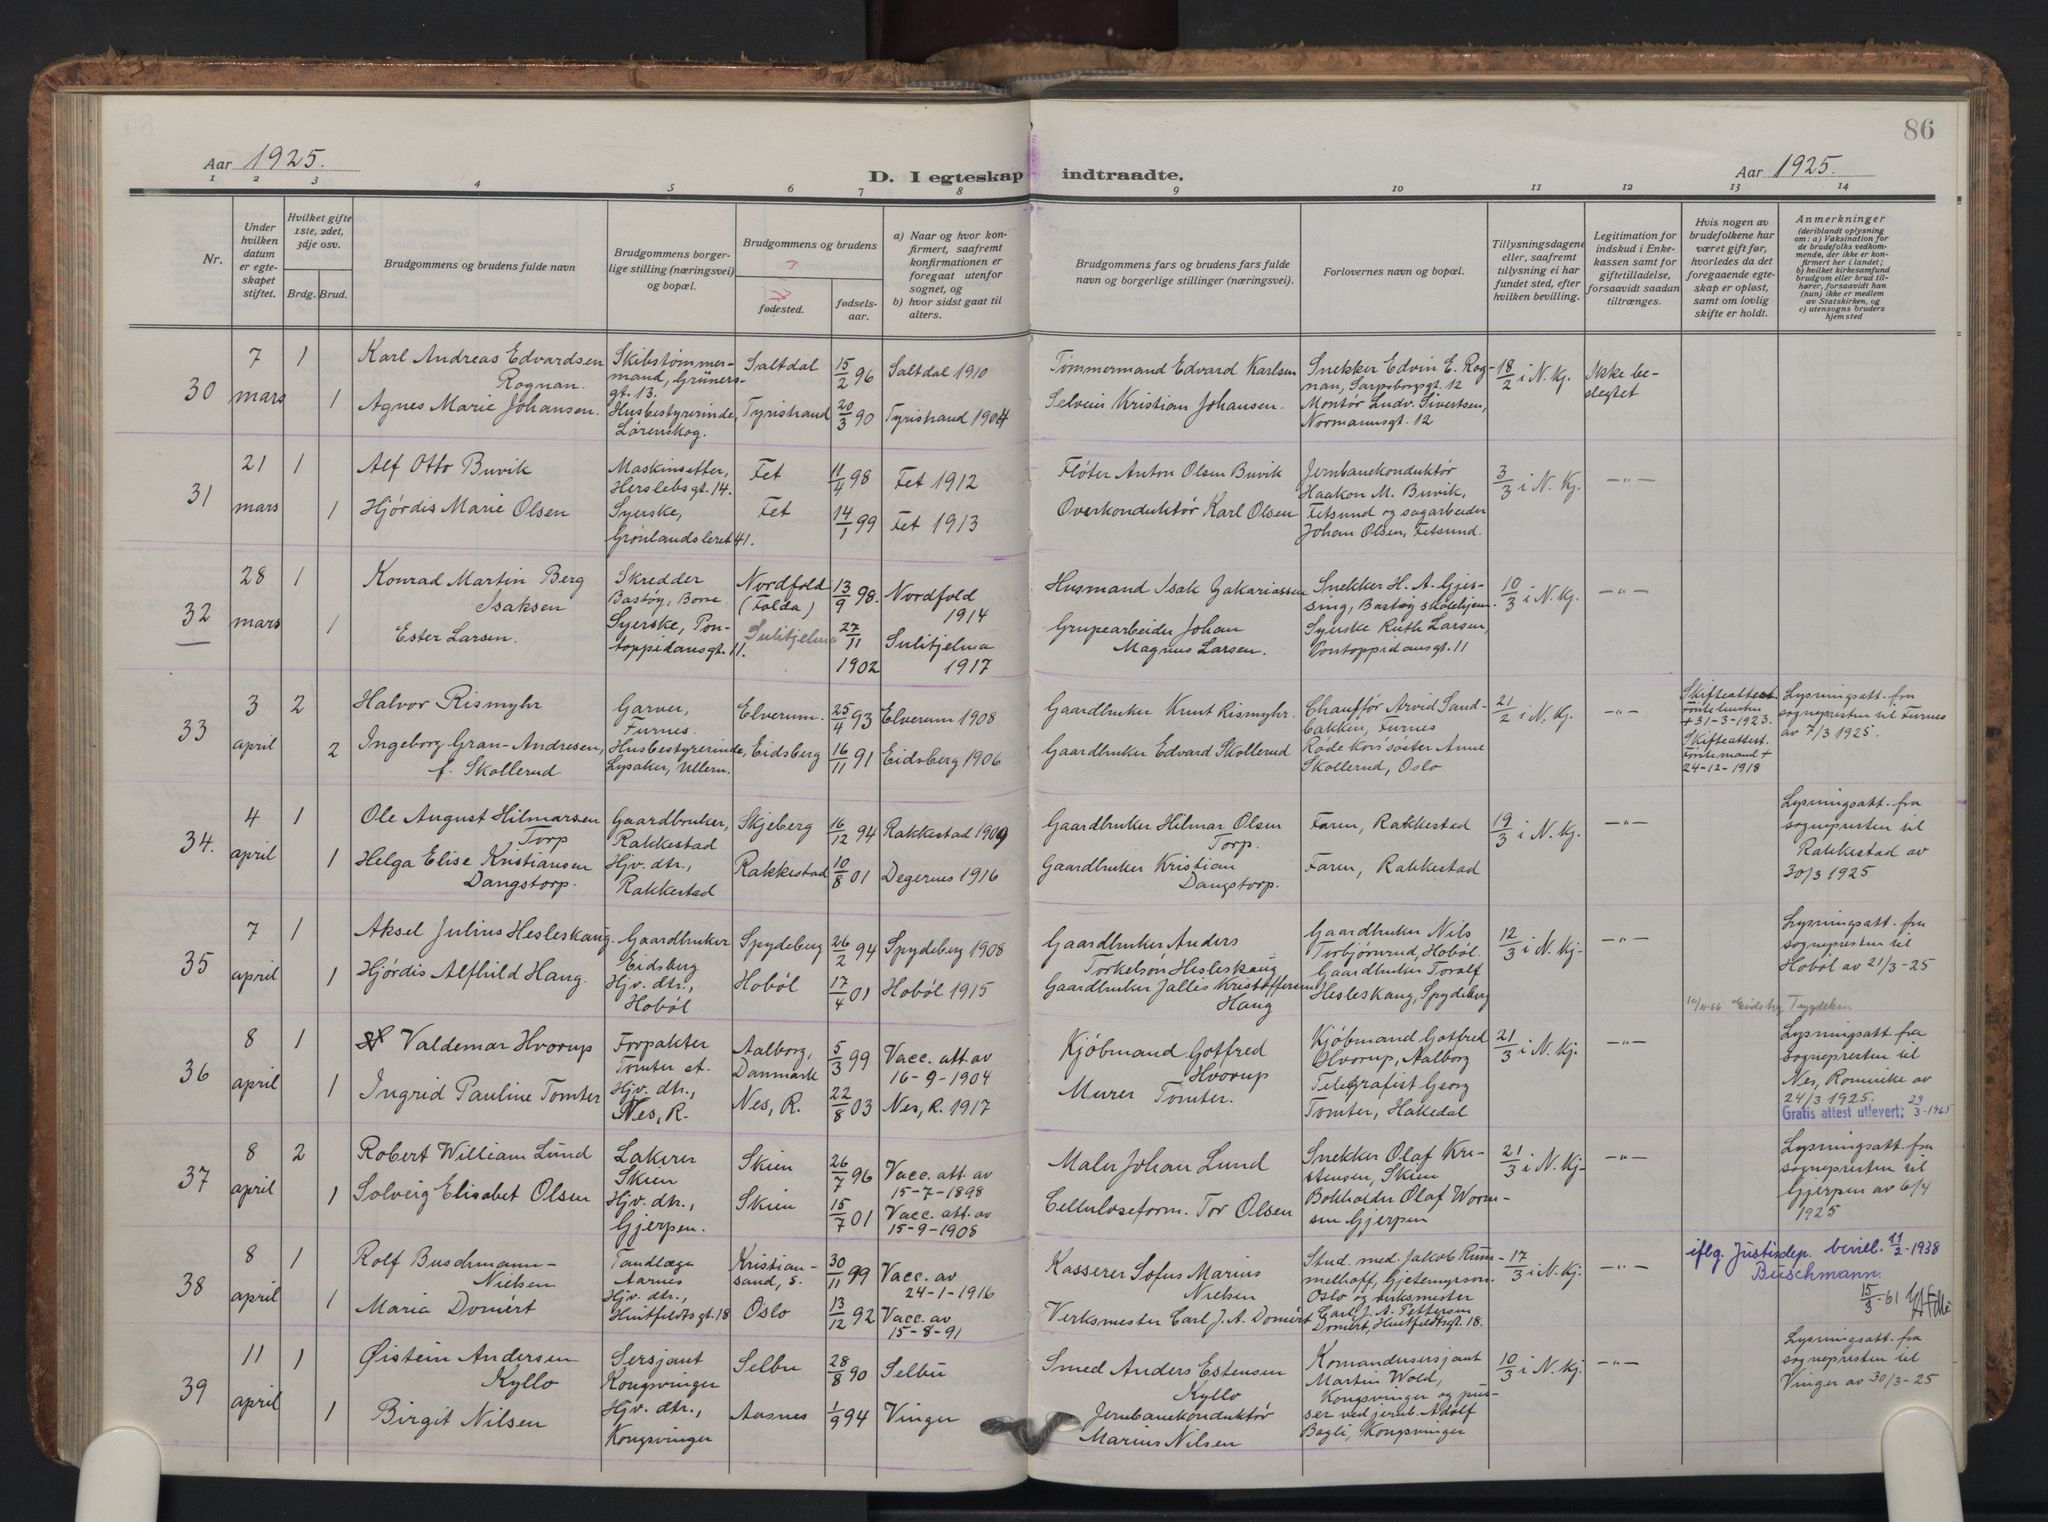 86
Aar 1925.
D. I egteskap indtraadte.
Aar 1925.
1 2 3 4 5 6 7 8 9 10 11 12 13 14
Nr.
Under hvilken datum er egteskapet stiftet.
Hvilket gifte 1ste, 2det, 3dje osv.
Brdg. Brud.
Brudgommens og brudens fulde navn
Brudgommens borgerlige stilling (næringsvei) og bopæl.
Brudgommens og brudens
fødested.
fødselsaar.
a) Naar og hvor konfirmert, saafremt konfirmationen er foregaat utenfor sognet, og
b) hvor sidst gaat til alters.
Brudgommens fars og brudens fars fulde navn og borgerlige stillinger (næringsvei).
Forlovernes navn og bopæl.
Tillysningsdagene eller, saafremt tillysning ei har fundet sted, efter hvilken bevilling.
Legitimation for indskud i Enkekassen samt for giftetilladelse, forsaavidt saadan tiltrænges.
Hvis nogen av brudefolkene har været gift før, hvorledes da det foregaaende egteskap er opløst, samt om lovlig skifte er holdt.
Anmerkninger
(deriblandt oplysning om: a) Vaksination for de brudefolks vedkommende, der ikke er konfirmert her i landet; b) hvilket kirkesamfund brudgom eller brud tilhører, forsaavidt han (hun) ikke er medlem av Statskirken, og c) utensogns bruders hjemsted
30
7 mars
1
Karl Andreas Edvardsen Rognan.
Skibstømmermand, Grünersgt. 13.
Saltdal
15/2 96
Saltdal 1910
Tømmermand Edvard Karlsen
Snekker Edvin E. Rognan, Sarpsborggt. 12
18/2 i N. Kj.
Ikke belegtet
1
Agnes Marie Johansen.
Husbestyrerinde, Lørenskog.
Tyristrand
20/3 90
Tyristrand 1904
Selveier Kristian Johansen.
Montør Ludv. Sivertsen, Normannsgt. 12
31
21 mars
1
Alf Otto Buvik
Maskinsetter, Herslebsgt. 14.
Fet
11/4 98
Fet 1912
Fløter Anton Olsen Buvik
Jernbanekonduktør Haakon M. Buvik, Fetsund og sagarbeider Johan Olsen, Fetsund.
3/3 i N. Kj.
—"—
1
Hjørdis Marie Olsen
Syerske, Grønlandsleret 41.
Fet
14/1 99
Fet 1913
Overkonduktør Karl Olsen
32
28 mars
1
Konrad Martin Berg Isaksen
Skredder Bastøy, Borre
Nordfold (Folda)
13/9 98.
Nordfold 1914
Husmand Isak Zakariassen
Snekker H. A. Gjessing, Bastøy skolehjem.
10/3 i N. Kj.
—"—
1
Ester Larsen.
Syerske, Pontoppidansgt. 11.
Sulitjelma
27/11 1902
Sulitjelma 1917
Grupearbeider Johan Magnus Larsen.
Syerske Ruth Larsen, Pontoppidansgt. 11
33
3 april
2
Halvor Rismyhr
Garver, Furnes.
Elverum.
25/4 93
Elverum 1908
Gaardbruker Knut Rismyhr.
Chauffør Arvid Sandbakken, Furnes
21/2 i N. Kj.
—"—
Skifteattest Førstehustru + 31-3-1923.
Skifteattest. Førstemand + 24-12-1918
Lysningsatt. fra sognepresten til Furnes av 7/3 1925.
2
Ingeborg Gran-Andresen, f. Skollerud
Husbestyrerinde, Lysaker, Ullern.
Eidsberg
16/11 91
Eidsberg 1906
Gaardbruker Edvard Skollerud
Røde Korssøster Anne Skollerud, Oslo
34.
4 april
1
Ole August Hilmarsen Torp
Gaardbruker, Rakkestad
Skjeberg
16/12 94
Rakkestad 1909
Gaardbruker Hilmar Olsen Torp.
Faren, Rakkestad
19/3 i N. Kj.
—"—
Lysningsatt. fra sognepresten til Rakkestad av 30/3 1925
1
Helga Elise Kristiansen Dangstorp.
Hjv. dtr., Rakkestad
Rakkestad
10/8 01
Degernes 1916
Gaardbruker Kristian Dangstorp.
Faren, Rakkestad
35
7 april
1
Aksel Julius Hesleskaug.
Gaardbruker Eidsberg
Spydeberg
26/2 94
Spydeberg 1908
Gaardbruker Anders Torkelsøn Hesleskaug
Gaardbruker Nils Torbjørnrud, Hobøl.
12/3 i N. Kj.
—"—
Lysningsatt. fra sognepresten til Hobøl av 21/3-25
1
Hjørdis Alfhild Haug.
Hjv. dtr., Hobøl
Hobøl
17/4 01
Hobøl 1915
Gaardbruker Jalles Kristoffersen Haug
Gaardbruker Toralf Hesleskaug, Spydeberg
36
8 april
1
Valdemar Hvorup
Forpakter Tomter st.
Aalborg, Danmark
5/3 99
Vacc. att. av 16-9-1904
Kjøbmand Gotfred Hvorup
Kjøbmand Gotfred Hvorup, Aalborg
21/3 i N. Kj.
—"—
Lysningsatt. fra sognepresten til Nes, Romerike av 24/3 1925.
Gratis attest utlevert: 29/3-1965
1
Ingrid Pauline Tomter
Hjv. dtr., Nes, R.
Nes, R.
22/8 03
Nes, R. 1917
Murer Tomter.
Telegrafist Georg Tomter, Hakedal
37
8 april
2
Robert William Lund
Lakerer Skien
Skien
26/7 96
Vacc. att. av 15-7-1898
Maler Johan Lund
Snekker Olaf Kristensen, Skien
21/3 i N. Kj.
—"—
Lysningsatt. fra sognepresten til Gjerpen av 6/4 1925
1
Solveig Elisabet Olsen
Hjv. dtr., Gjerpen.
Skien
15/7 01
Vacc. att. av 15-9-1908
Celluloseform. Tor Olsen
Bokholder Olaf Gjerpen
38
8 april
1
Rolf Buschmann-Nielsen
Tandlæge Aarnes
Kristiansand, S.
30/11 99
Vacc. av 24-1-1916
Kasserer Sofus Marius Nielsen
Stud. med. Jakob Rummelhoff, Gjetemyrsvn. Oslo og verksmester
17/3 i N. Kj.
—"—
iflg. Justisdep. bevill. 11/2-1938 Buschmann.
15/3-61
1
Maria Domért
Hjv. dtr., Huitfeldtsgt. 18
Oslo
13/12 92
Vacc. av 15-8-91
Verksmester Carl J. A. Domért
Carl J. A. Pettersen Domért, Huitfeldtsgt. 18.
39
11 april
1
Øistein Andersen Kyllo
Sersjant Kongsvinger
Selbu
28/8 90
Selbu
Smed Anders Estensen Kyllo
Komandersersjant Martin Wold, Kongsvinger og pusser ved jernb. Adolf Bogli, Kongsvinger
10/3 i N. Kj.
—"—
Lysningsatt. fra sognepresten til Vinger av 30/3-25
1
Birgit Nilsen
Hjv. dtr., Kongsvinger
Aasnes
1/9 94
Vinger
Jernbanekonduktør Marius Nilsen